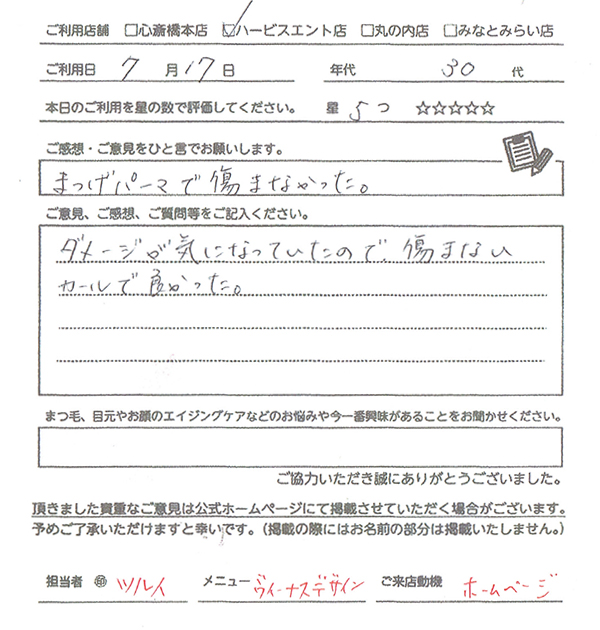 ご利用店舗 □心斎橋本店 ☑ハービスエント店 □丸の内店 □みなとみらい店
ご利用日 7月17日 年代 30代
本日のご利用を星の数で評価してください。 星 5つ ☆☆☆☆☆
ご感想・ご意見をひと言でお願いします。
まつげパーマで傷まなかった。
ご意見、ご感想、ご質問等をご記入ください。
ダメージが気になっていたので、傷まない
カールで良かった。
まつ毛、目元やお顔のエイジングケアなどのお悩みや今一番興味があることをお聞かせください。
ご協力いただき誠にありがとうございました。
頂きました貴重なご意見は公式ホームページにて掲載させていただく場合がございます。
予めご了承いただけますと幸いです。(掲載の際にはお名前の部分は掲載いたしません。)
担当者 ツル人 メニュー ヴィーナスデザイン ご来店動機 ホームページ